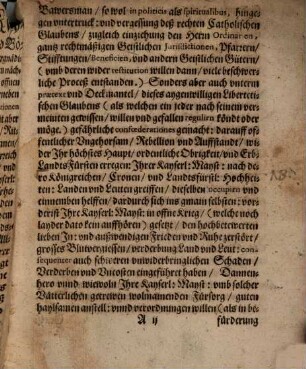 Bawersman / so wol in politicis als spiritualibus, hingegen
vntertruck: vnd vergessung deß rechten Catholischen
Glaubens / zugleich einziehung den Herrn Ordinarien,
gang rechtmäßigen Geistlichen Jurisdictionen, Pfarrern /
Stifftungen / Beneficien, vnd andern Geistlichen Gütern /
(vmb deren wider restitucion willen dann / viele beschwerliche
Proceß entstanden.) Sonders aber auch vnterm
prætext vnd Deckmantel / dieses angenwilligen Libertetischen
Glaubens (als welchen ein jeder nach seinem vermeinten
gewissen / willen vnd gefallen regulirn köndt oder
möge.) gefährliche confœderationes gemacht: darauff offentlicher
Vngehorsam / Rebellion vnd Auffstandt / wider
Ihr höchstes Haupt / ordenliche Obrigkeit / vnd Erb
Landts Fürsten erregen: Ihrer Kayserl: Mayst: nach dero
Königreichen / Cronen / vnd Landsfürstl: Hochheiten:
Landen vnd Leuten greiffen / dieselben occupirn vnd
einnemben helffen / dardurch sich ins gmain selbsten: vorderist
Ihre Kayserl: Mayst: in offne Krieg / (welche noch
layder dato kein auffhören) gesetzt / den hochbetewerten
lieben In: vnd außwendigen Frieden vnd Ruhe zerstört /
grosses Blutvergiessen / verderbung Land vnd Leut: consequenter
auch schweren vnwiderbringlichen Schaden /
Verderben vnd Vnkosten eingeführet haben / Dannenhero
vnnd wiewoln Ihre Kayserl: Mayst: vmb solcher
Vätterlichen getrewen wolmainenden Fürsorg / guten
haylsamen anstell: vnnd verordnungen willen (als in be
A ij
fürderung